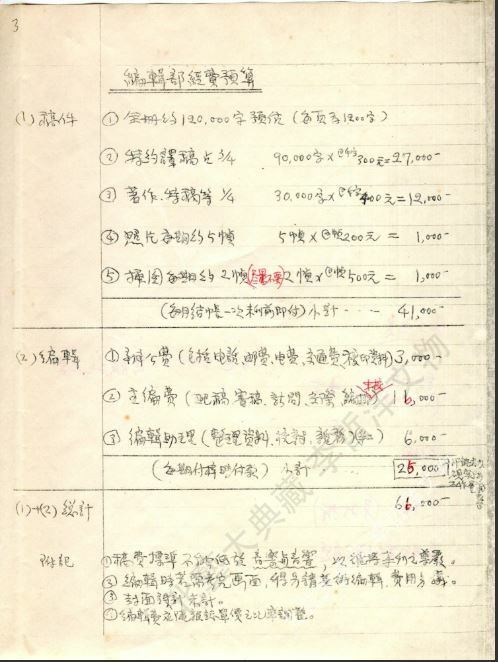 3
編輯部經費預算
(1)稿件 ①全冊約120,000字預估(每頁1200字)
②特約譯稿占3/4 90,000字×@千字300元=27,000-
③著作、特稿等1/4 30,000字×@千字400元=12,000-
④照片每期約5幀 5幀×@幀200元= 1,000-
⑤插圖每期約2幀 2幀×@幀500元= 1,000-
(每月結帳一次利前即付)小計 ---- 41,000-
(2)編輯 ①辦公費(包括電話、郵費、電費、交通費、資料)3,000-
②主編費(配稿、審稿、訪問、交際、編排) 16,000-
③編輯助理(整理資料、校對、雜務) 6,000-
(每期付梓時付款) 小計 25,000-
(1)+(2)總計 66,000-
附記 ①稿費標準不能低於音樂與音響,以維持本刊之尊嚴。
②編輯時若需考究畫面,得另請美術編輯,費用另議。
③封面設計未計。
④編輯費